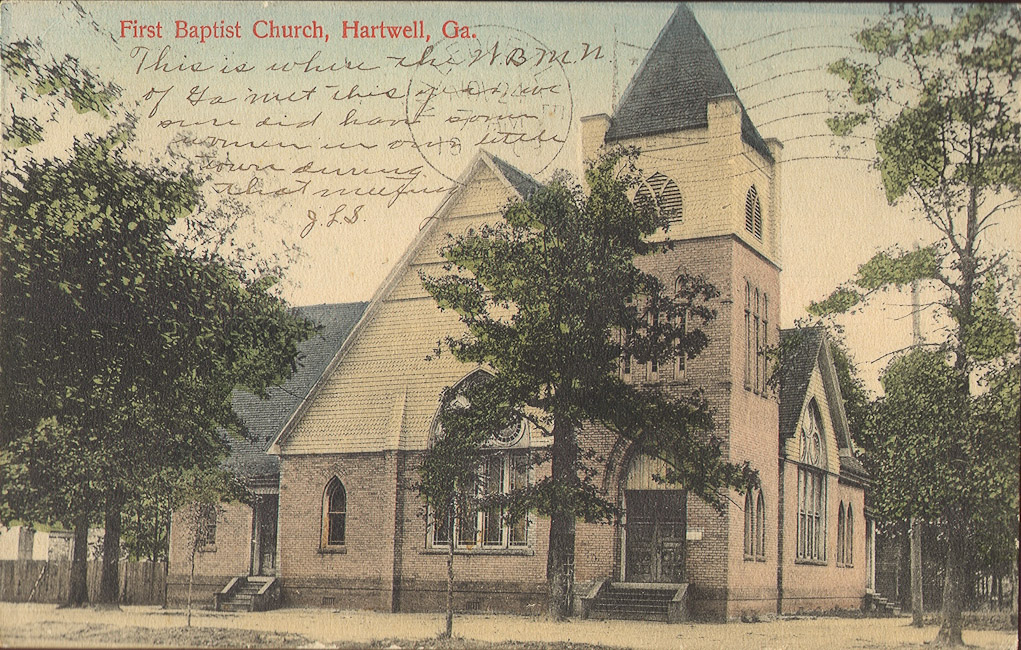 First Baptist Church, Hartwell, Ga.
This is where the W.B.M.N.
of Ga met this year, we
sure did have some
women in our little
town during
that meeting
J.L.S.